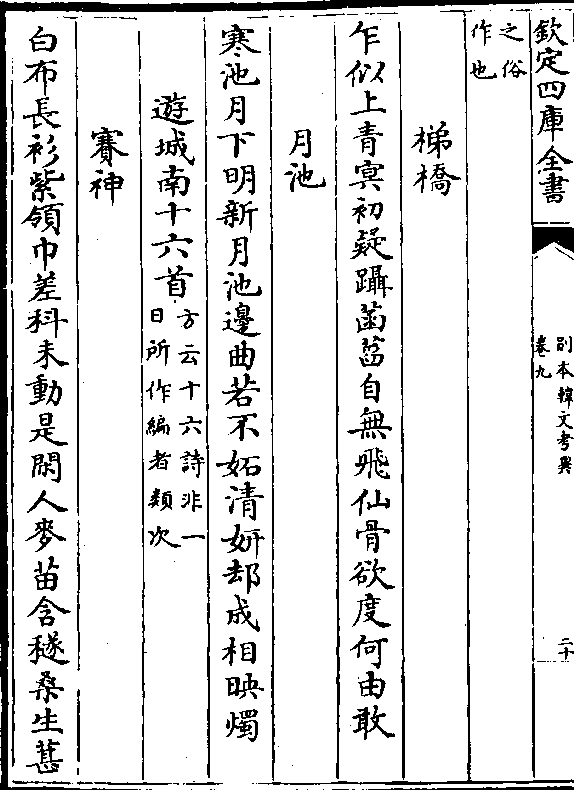 欽定四庫全書
別本韓文考異
卷九
二十
之俗
作也
梯橋
乍似上青冥初疑躡菡萏自無飛仙骨欲度何由敢
月池
寒池月下明新月池邊曲若不妬清妍却成相映燭
遊城南十六首
方云十六詩非一
日所作編者類次
賽神
白布長衫紫領巾差科未動是閑人麥苗含穟桑生葚